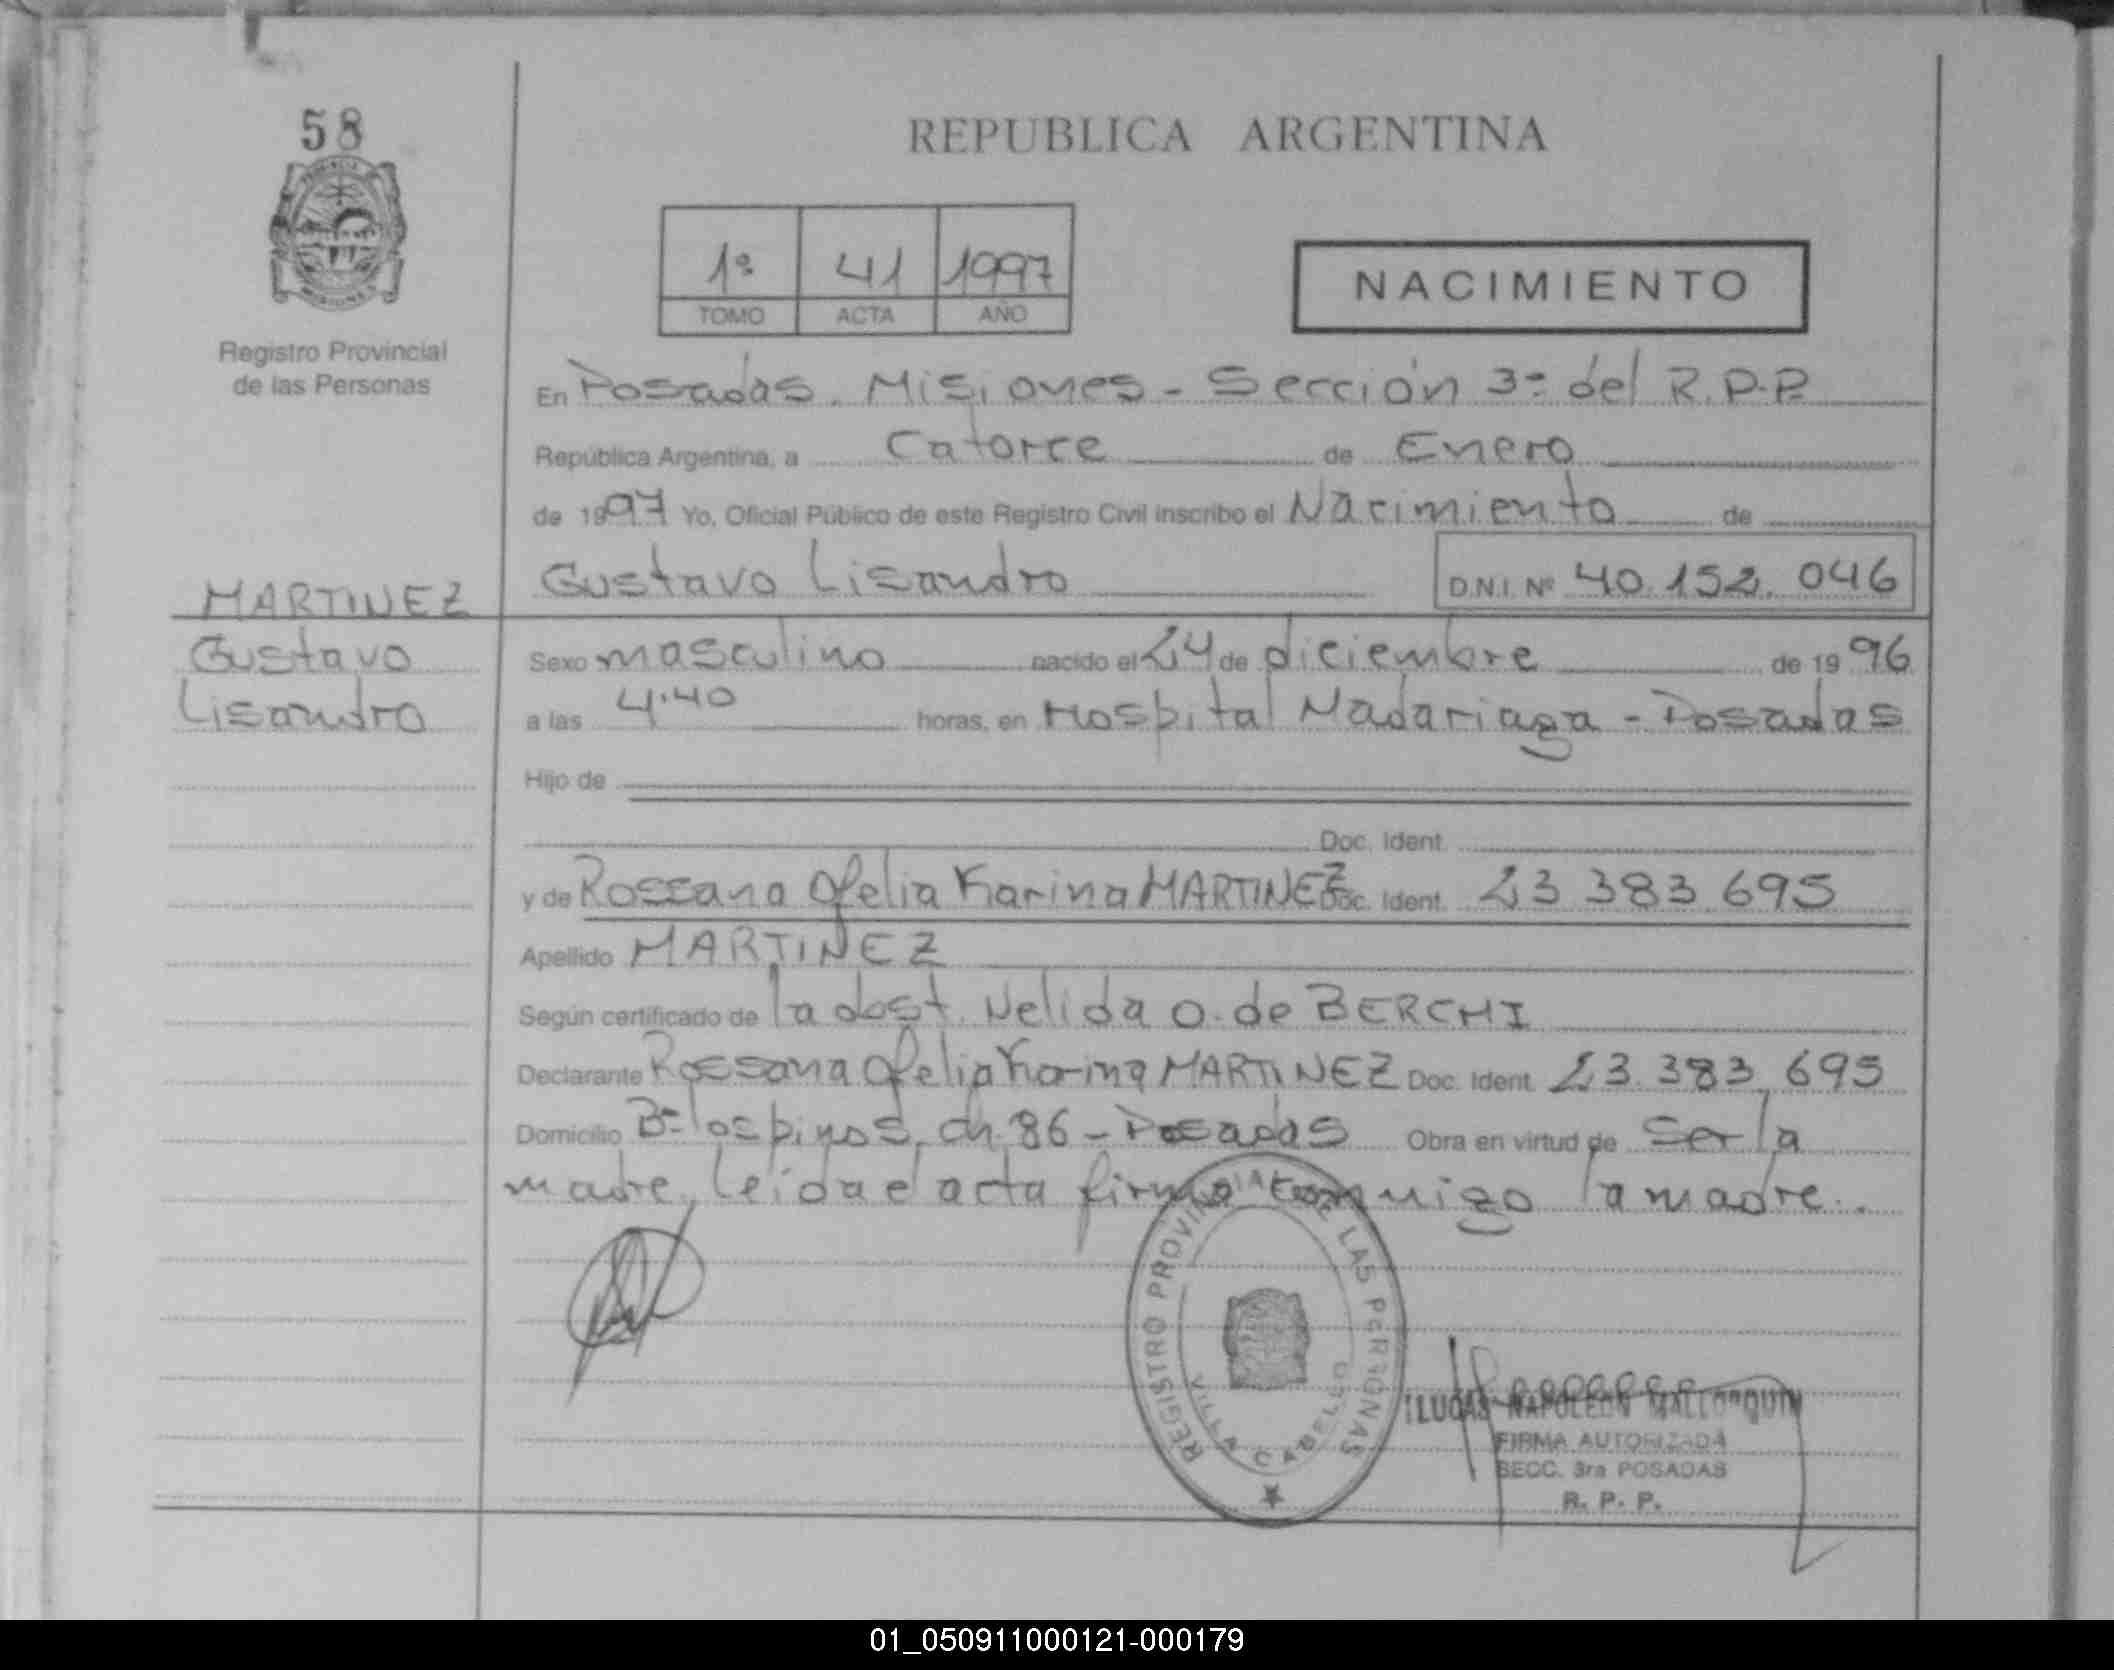 58
REPUBLICA ARGENTINA
1º 41 1997
TOMO ACTA AÑO
NACIMIENTO
Registro Provincial
de las Personas
En Posadas. Misiones - Sección 3º del R.P.P.
República Argentina, a Catorce de Enero
de 1997 Yo, Oficial Público de este Registro Civil inscribo el Nacimiento de
Gustavo Lisandro D.N.I. Nº 40.152.046
MARTINEZ
Gustavo
Lisandro
Sexo masculino nacido el 24 de diciembre de 1996
a las 4.40 horas, en Hospital Madariaga - Posadas
Hijo de
Doc. Ident.
y de Rossana Ofelia Karina MARTINEZ Doc. Ident. 23 383 695
Apellido MARTINEZ
Según certificado de la obst. Nelida O. de BERCHI
Declarante Rossana Ofelia Karina MARTINEZ Doc. Ident. 23.383.695
Domicilio Bº los pinos, ch. 86 - Posadas Obra en virtud de ser la
madre, leida el acta firma conmigo la madre.
REGISTRO PROVINCIAL DE LAS PERSONAS
VILLA CABELLO
LUCAS NAPOLEON MALLORQUIN
FIRMA AUTORIZADA
SECC. 3ra POSADAS
R. P. P.
01_050911000121-000179